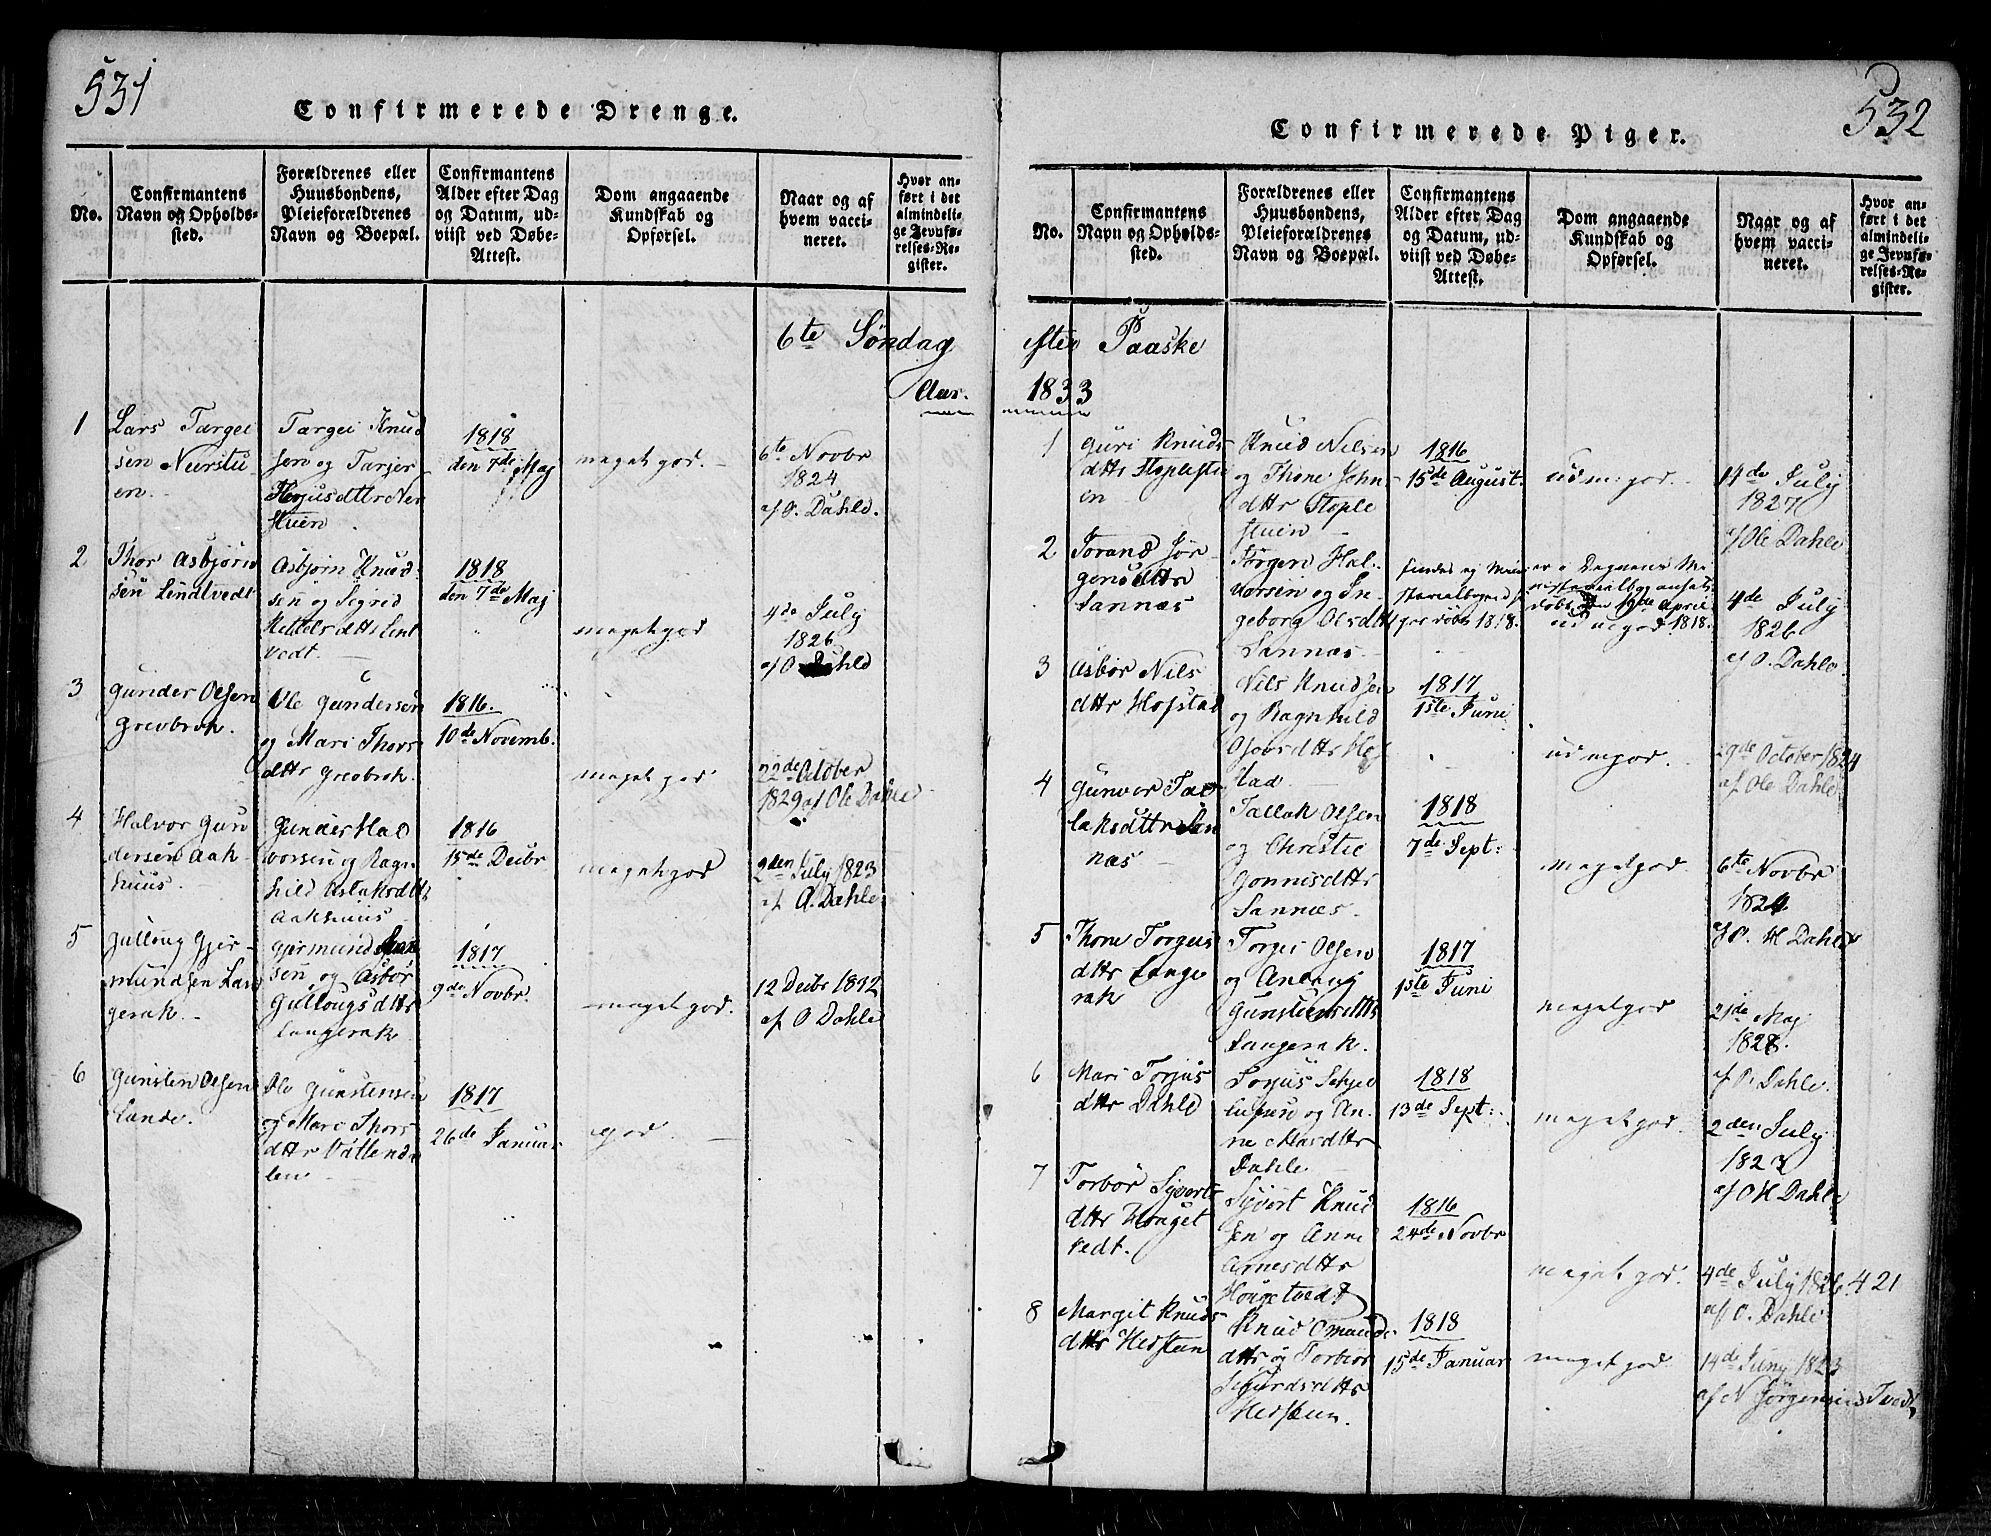 531
Confirmerede Drenge.
No.
Confirmantens
Navn og Opholds-
sted.
Forældrenes eller
Huusbondens,
Pleieforældrenes
Navn og Boepæl.
Confirmantens
Alder efter Dag
og Datum, ud-
viist ved Døbe-
Attest.
Dom angaaende
Kundskab og
Opførsel.
Naar og af
hvem vacci-
neret.
Hvor an-
ført i det
almindeli-
ge Jevnfø-
relses-Re-
gister.
6te Søndag
Aar.
1
Lars Targei
sen
en
Targei Knud
sen og
1818
den 7de Maj
meget god.
6te Novbr
1824
af O. Dahle.
2
Thor Asbjørn
sen Lindtvedt
Asbjørn Knud-
sen og Sigrid
Kettelsdttr Lent
vedt.
1818
den 7de Maj
meget god
4de July
1826
af O Dahle
3
Gunder Olsen
Grevbrok.
Ole Gundersen
og Mari Thors
dttr Grevbrok.
1816.
10de Novemb.
meget god
22de October
1829 af Ole Dahle
4
Halvor Gun
dersen Aak
huus.
Gunder Hal
vorsen og Ragn
hild Aslaksdttr
Aakhuus
1816
15de Decbr
meget god
2den July 1823
af O. Dahle
5
Gulloug Gjer-
mundsen Lan
gerak.
Gjermund
sen og Asbør
Gullougsdttr
Langerak
1817
9de Novbr.
meget god.
12 Decbr 1832
af O Dahle
6
Gunsten Olsen
Lande.
Ole Gunstensen
og Mari Thors
dttr Vatlenda
len
1817
26de Januar
god.
532
Confirmerede Piger.
No.
Confirmantens
Navn og Opholds-
sted.
Forældrenes eller
Huusbondens,
Pleieforældrenes
Navn og Boepæl.
Confirmantens
Alder efter Dag
og Datum, ud-
viist ved Døbe-
Attest.
Dom angaaende
Kundskab og
Opførsel.
Naar og af
hvem vacci-
neret.
Hvor an-
ført i det
almindeli-
ge Jevnfø-
relses-Re-
gister.
efter Paaske
1833
1
Guri Knuds
dttr Stoplestu
en
Knud Nilsen
og Thone John
dttr Stople
stuen
1816
15de August.
udm: god.
14de July
1827
af Ole Dahle
2
Torand Jør-
gensdttr
Sannæs
Jørgen Hal-
vorsen og In
geborg Olsdttr
Sannæs
findes ej
1818.
døbt den 19de April
1818.
ud m god
4de July
1826
af O. Dahle
3
Asbør Nils
dttr Hofstad
Nils Knudsen
og Ragnhild
Hof
stad
1817
1ste Juni
udmgod.
29de October 1824
af Ole Dahle
4
Gunvor Tal
laksdttr San
næs
Tallak Olsen
og Christie
Gonnisdttr
Sannæs
1818
7de Sept:
meget god.
6te Novbr
1824
af O. H Dahle
5
Thone Torgeis
dttr Lange
rak
Torgei Olsen
og
Gunsteinsdttr
Langerak.
1817
1ste Juni
meget god
21de Maj
1828.
af O. Dahle.
6
Mari Torjus
dttr Dahle
Torjus
og An-
ne Aasdttr
Dahle
1818
13de Sept:
meget god.
2den July
1823
af O H Dahle
7
Torbør Syvert
dttr Houget
vedt.
Syvert Knud
sen og Anne
Arnesdttr
Hougetvedt
1816
24de Novbr
meget god.
4de July 1826
af O. Dahle
421
8
Margit Knuds
dttr Hedsteen
Knud Omund-
dttr og Torbiør
Sigurdsdttr
Hedsteen.
1818
15de Januar
meget god
14de Juny 1823
af N Jørgensen Tvedt